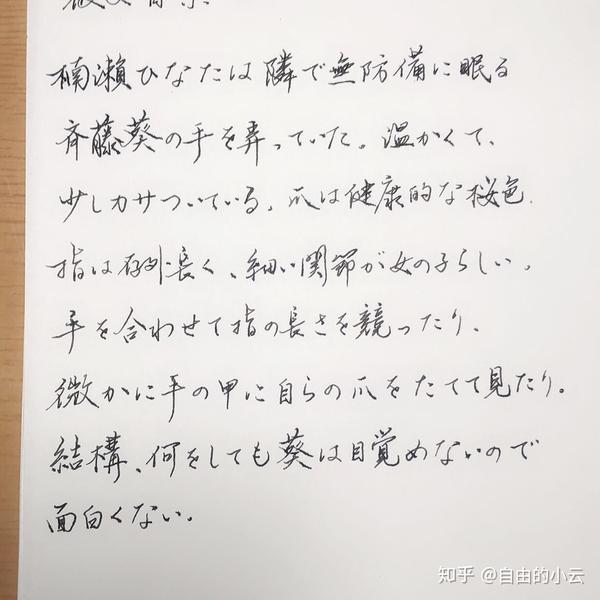 楠瀬ひなたは隣で無防備に眠る
斉藤葵の手を弄っていた。温かくて、
少しカサついている。爪は健康的な桜色、
指は砑長く、細い関節が女の子らしい。
手を合わせて指の長さを競ったり、
微かに手の甲に自らの爪をたてて見たり。
結構、何をしても葵は目覚めないので
面白くない。
知乎 @自由的小云